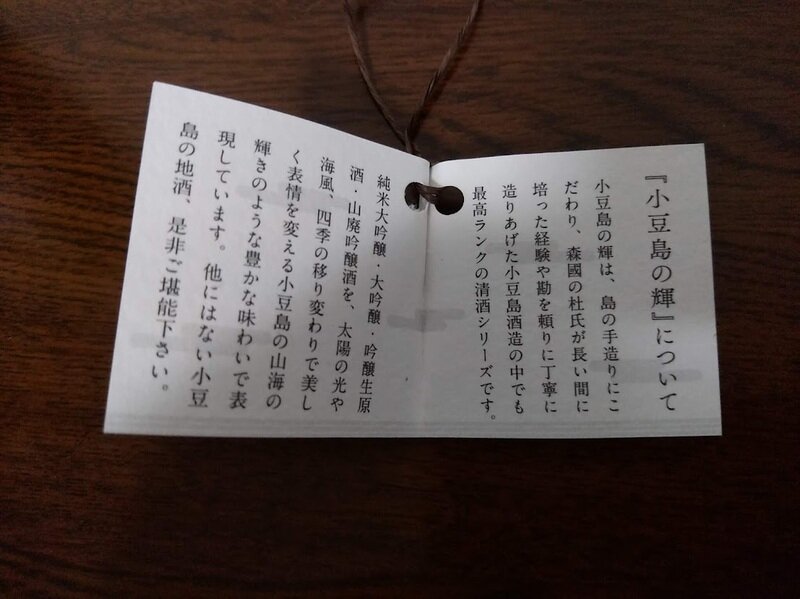 『小豆島の輝』について
小豆島の輝は、島の手造りにこ
だわり、森國の杜氏が長い間に
培った経験や勘を頼りに丁寧に
造りあげた小豆島酒造の中でも
最高ランクの清酒シリーズです。
純米大吟醸・大吟醸・吟醸生原
酒・山廃吟醸酒を、太陽の光や
海風、四季の移り変わりで美し
く表情を変える小豆島の山海の
輝きのような豊かな味わいで表
現しています。他にはない小豆
島の地酒、是非ご堪能下さい。